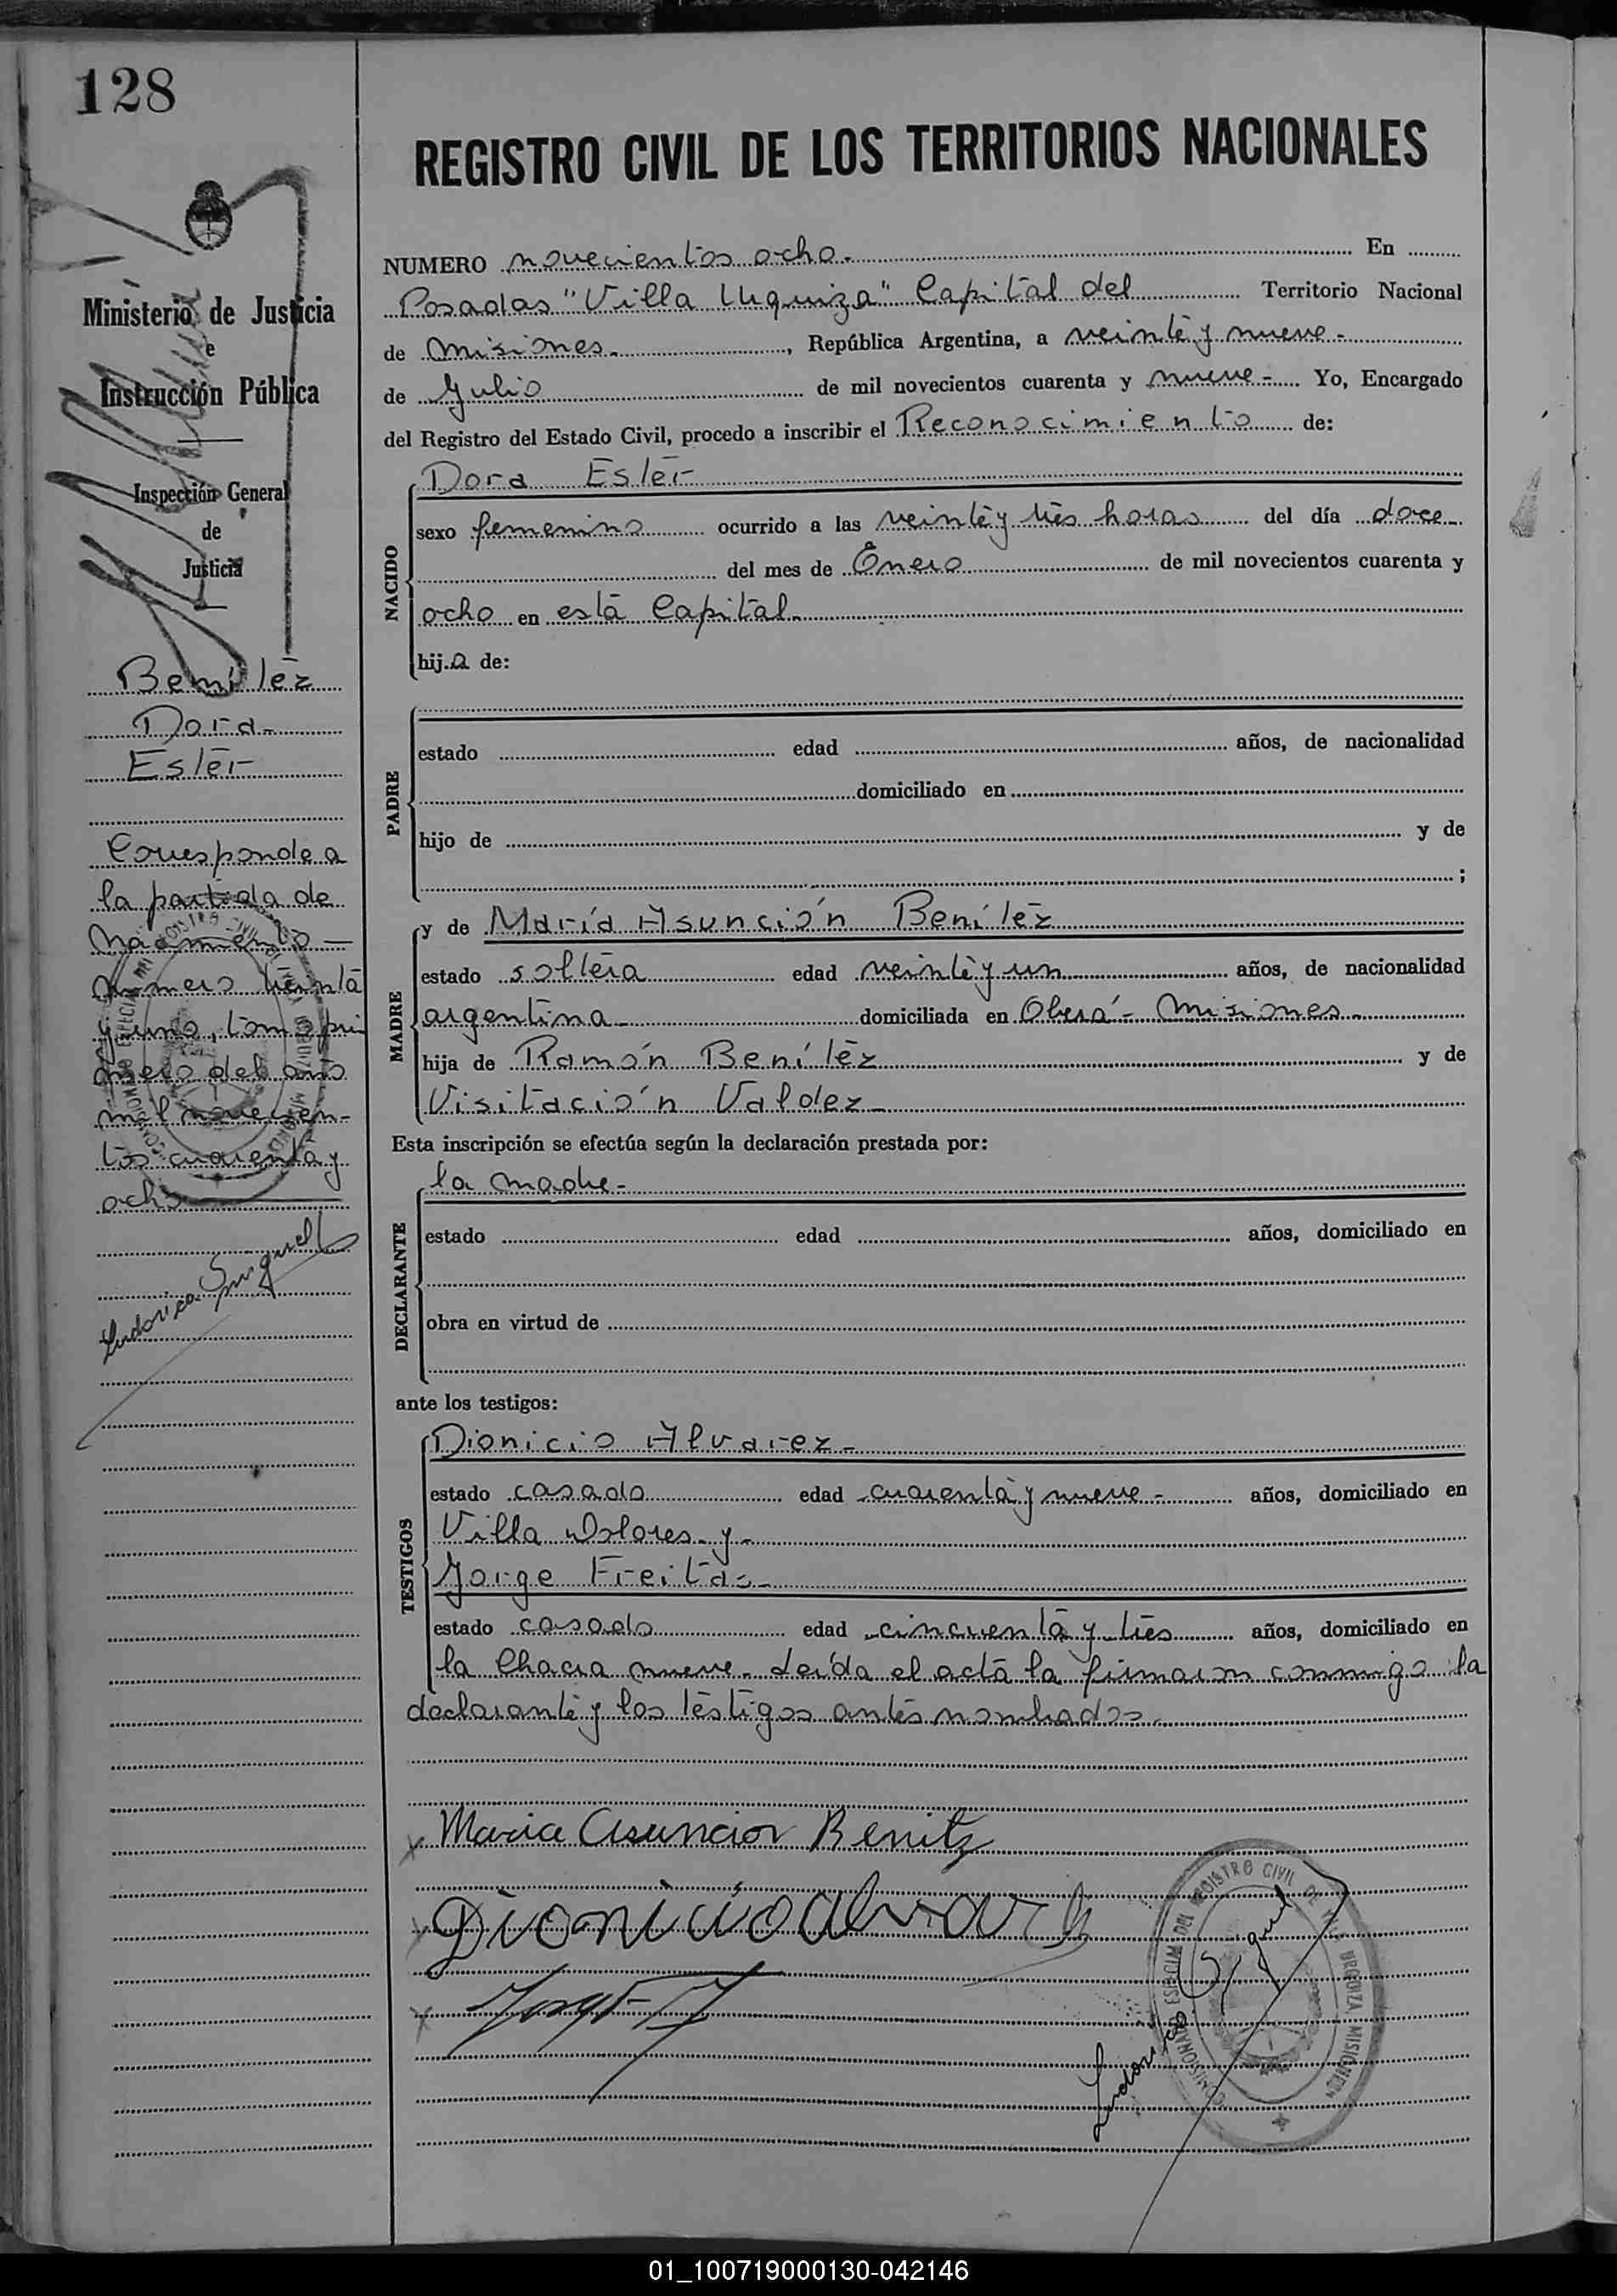 128
Ministerio de Justicia
e
Instrucción Pública
Inspección General
de
Justicia
Benítez
Dora
Ester
Corresponde a
la partida de
Nacimiento
número treinta
y uno, tomo pri
mero del año
mil novecien-
tos cuarenta y
ocho
REGISTRO CIVIL DE LOS TERRITORIOS NACIONALES
NUMERO novecientos ocho. En
Posadas "Villa Urquiza" Capital del Territorio Nacional
de Misiones. , República Argentina, a veinte y nueve-
de Julio de mil novecientos cuarenta y nueve- Yo, Encargado
del Registro del Estado Civil, procedo a inscribir el Reconocimiento de:
NACIDO
Dora Ester
sexo femenino ocurrido a las veinte y tres horas del día doce
del mes de Enero de mil novecientos cuarenta y
ocho en esta Capital.
hija de:
PADRE
estado edad años, de nacionalidad
domiciliado en
hijo de y de
;
MADRE
y de María Asunción Benítez
estado soltera edad veinte y un años, de nacionalidad
argentina domiciliada en Oberá - Misiones.
hija de Ramón Benítez y de
Visitación Valdez
Esta inscripción se efectúa según la declaración prestada por:
DECLARANTE
la madre-
estado edad años, domiciliado en
obra en virtud de
ante los testigos:
TESTIGOS
Dionicio Alvarez-
estado casado edad cuarenta y nueve- años, domiciliado en
Villa Dolores y-
Jorge Freitas-
estado casado edad cincuenta y tres años, domiciliado en
la Chacra nueve. Leída el acta la firmaron conmigo la
declarante y los testigos antes nombrados.
Maria Asuncion Benitz
Dionicio Alvarez
01_100719000130-042146